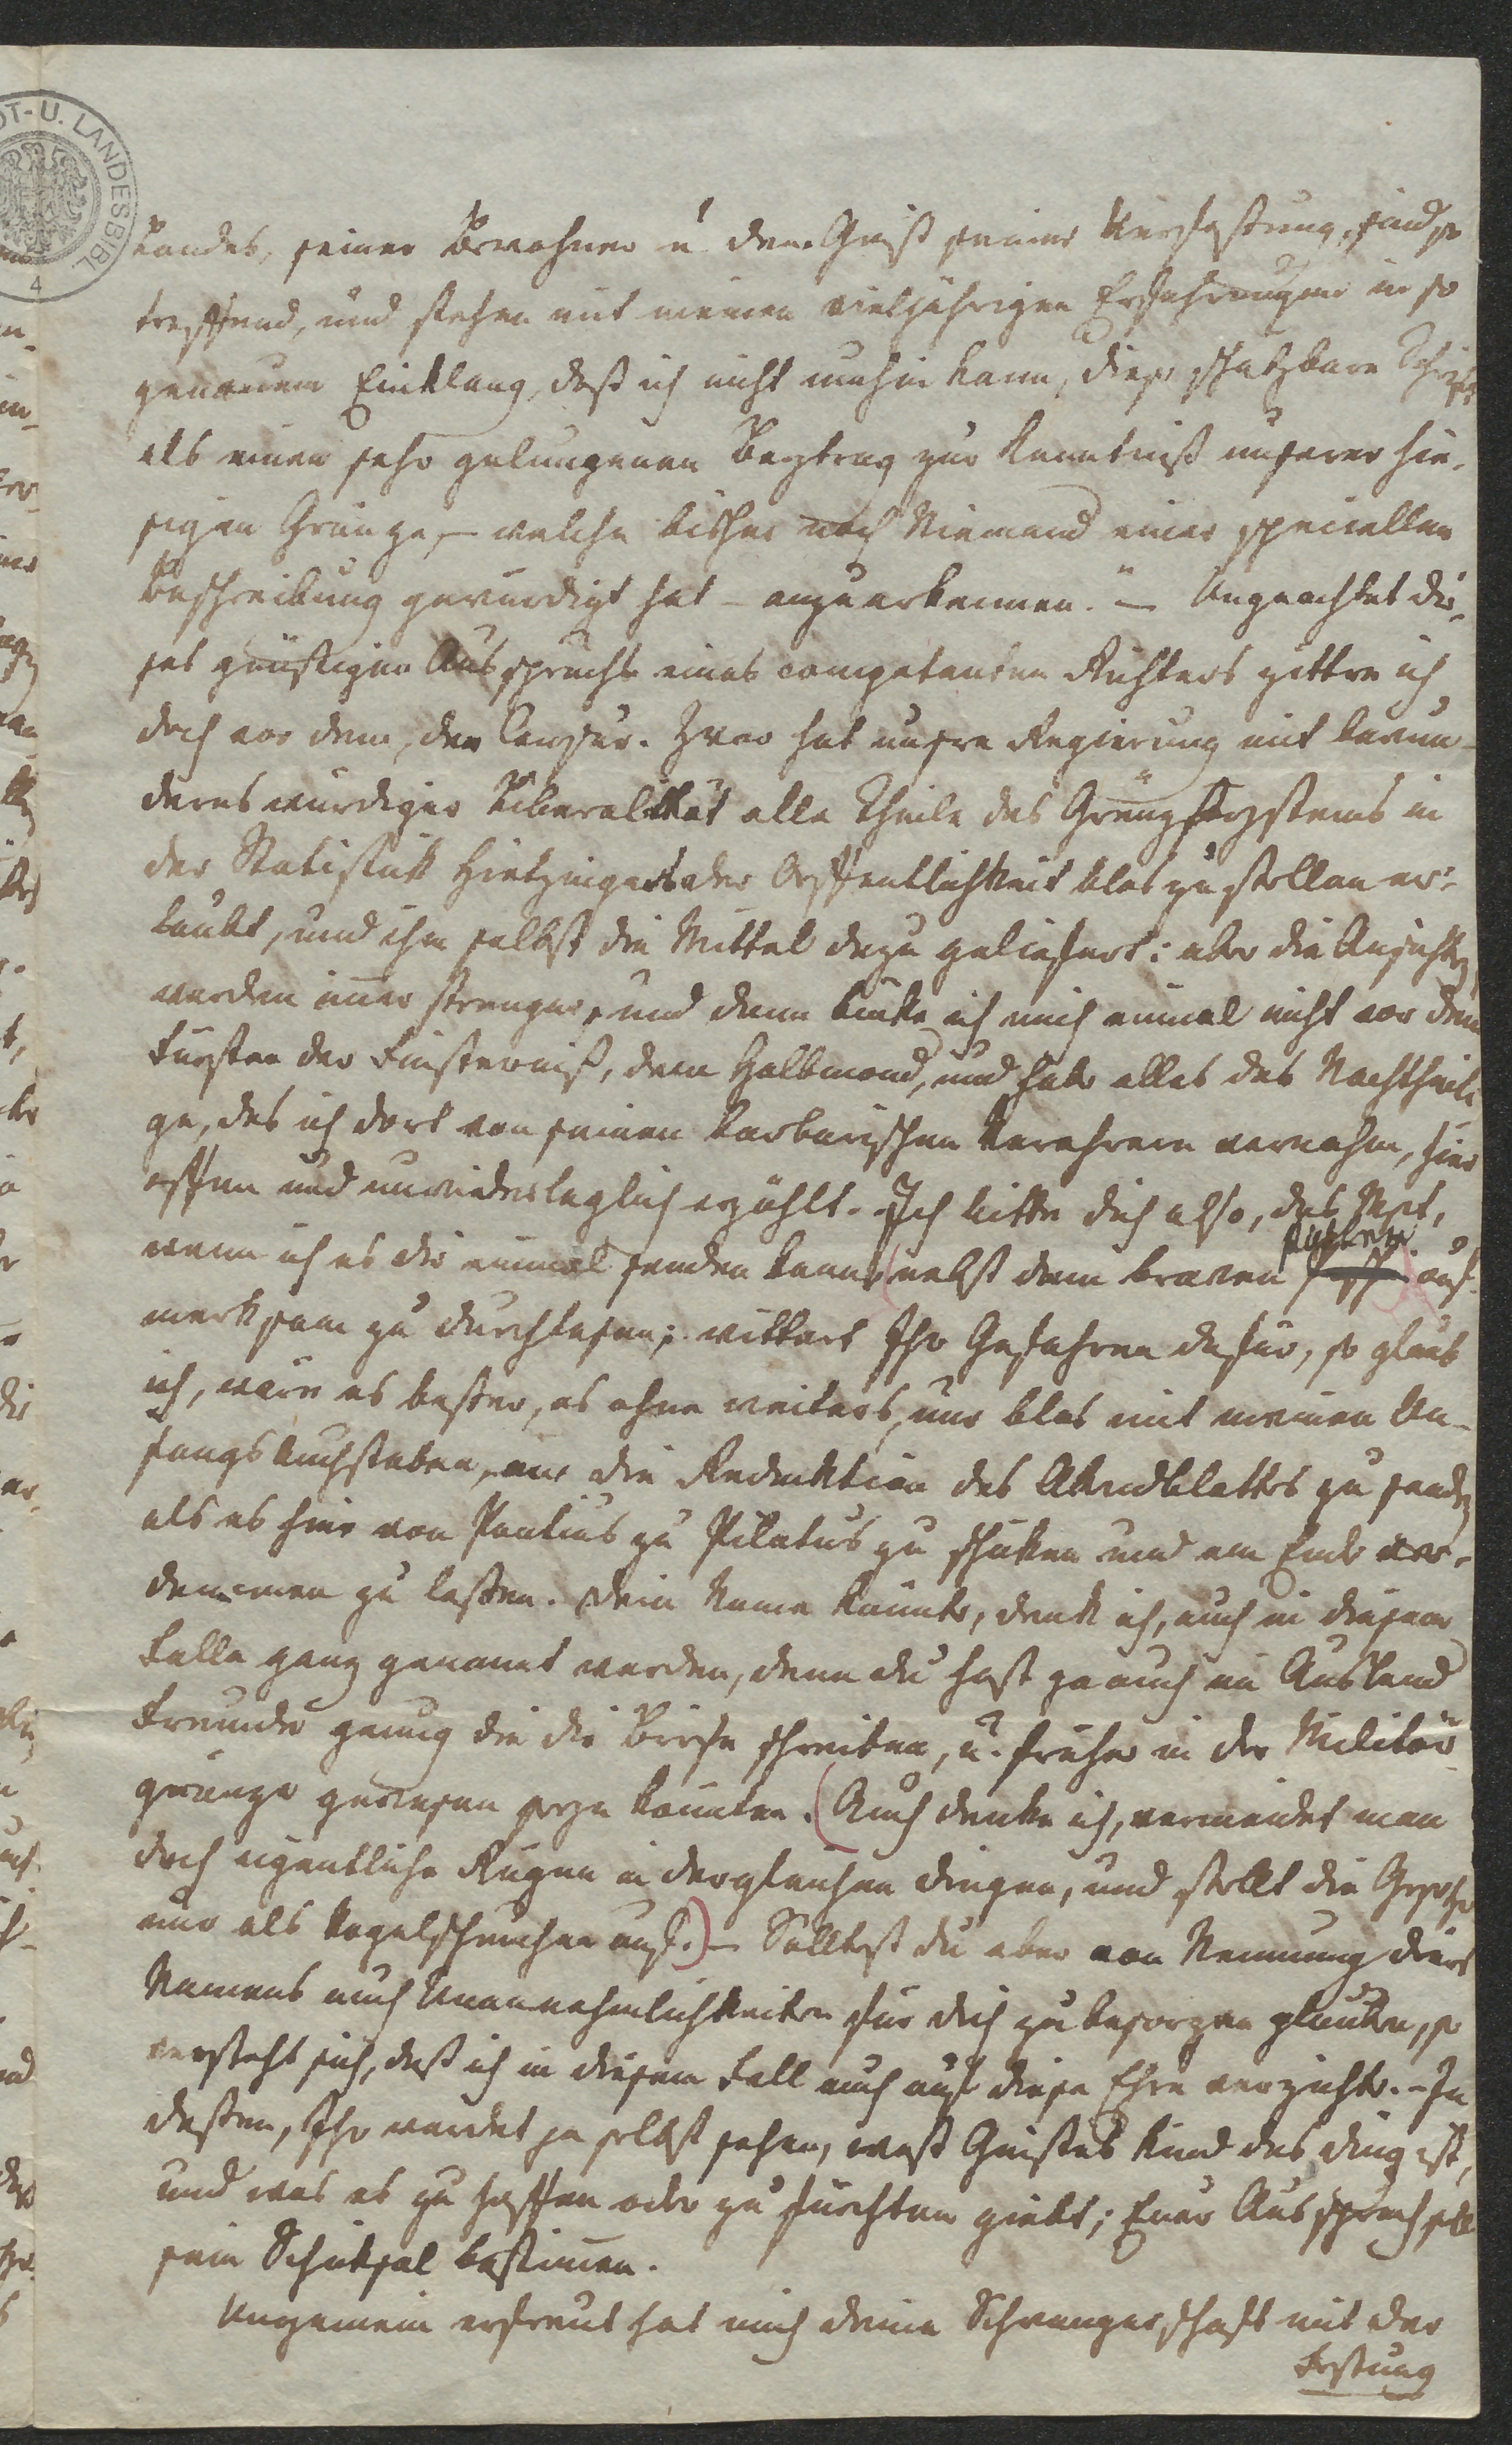 Landes, seiner Bewohner u. dem Geist seiner Verfassung, sind so
treffend, und stehen mit meinen vieljährigen Erfahrungen in so
genauem Einklang, daß ich nicht umhin kann, diese schätzbare Schrift
als einen sehr gelungenen Beytrag zur Kenntniß unserer hie-
sigen Gränze, – welche bisher noch Niemand einer speciellen
Beschreibung gewürdigt hat – anzuerkennen." – Ungeachtet die-
ses günstigen Ausspruchs eines competenten Richters zittre ich
doch vor dem, der Censur. Zwar hat unsre Regierung mit bewun-
dernswürdiger Liberalität alle Theile des Gränzsystems in
der Statistik Hietzingers der Oeffentlichkeit blos zu stellen er-
laubt, und ihm selbst die Mittel dazu geliefert: aber die Ansichten
werden immer strenger, und dann bücke ich mich einmal nicht vor dem
Fürsten der Finsterniß, dem Halbmond, und habe alles das Nachtheili-
ge, das ich dort von seinen barbarischen Verehrern vernahm, hier
offen und unwiderleglich erzählt. Ich bitte dich also, das Mpt,
wenn ich es dir einmal senden kann, (nebst dem braven auf-
merksam zu durchlesen; wittert Ihr Gefahren dafür, so glaub
ich, wäre es besser, es ohne weiters, nur blos mit meinen An-
fangsbuchstaben, an die Redaktion des Abendblattes zu senden
als es hier von Pontius zu Pilatus zu schicken und am Ende ver-
dammen zu lassen. Dein Name könnte, denk ich, auch in diesem
Falle ganz genannt werden, denn du hast ja auch im Ausland
Freunde genug die dir Briefe schreiben, u. früher in der Militär-
gränze gewesen seyn könnten. (Auch denke ich, vermeidet man
doch eigentliche Rügen in dergleichen Dingen, und stellt die Gesetze
nur als Vogelscheuchen auf.) – Solltest du aber von Nennung deines
Namens auch Unannehmlichkeiten für dich zu besorgen glauben, so
versteht sich, daß ich in diesem Fall auch auf diese Ehre verzichte. – In
dessen, Ihr werdet ja selbst sehen, weß Geistes Kind das Ding ist,
und was es zu hoffen oder zu fürchten giebt; Euer Ausspruch soll
sein Schicksal bestimmen.
Ungemein erfreut hat mich deine Schwangerschaft mit der
Festung
LANDESBIBL.
4